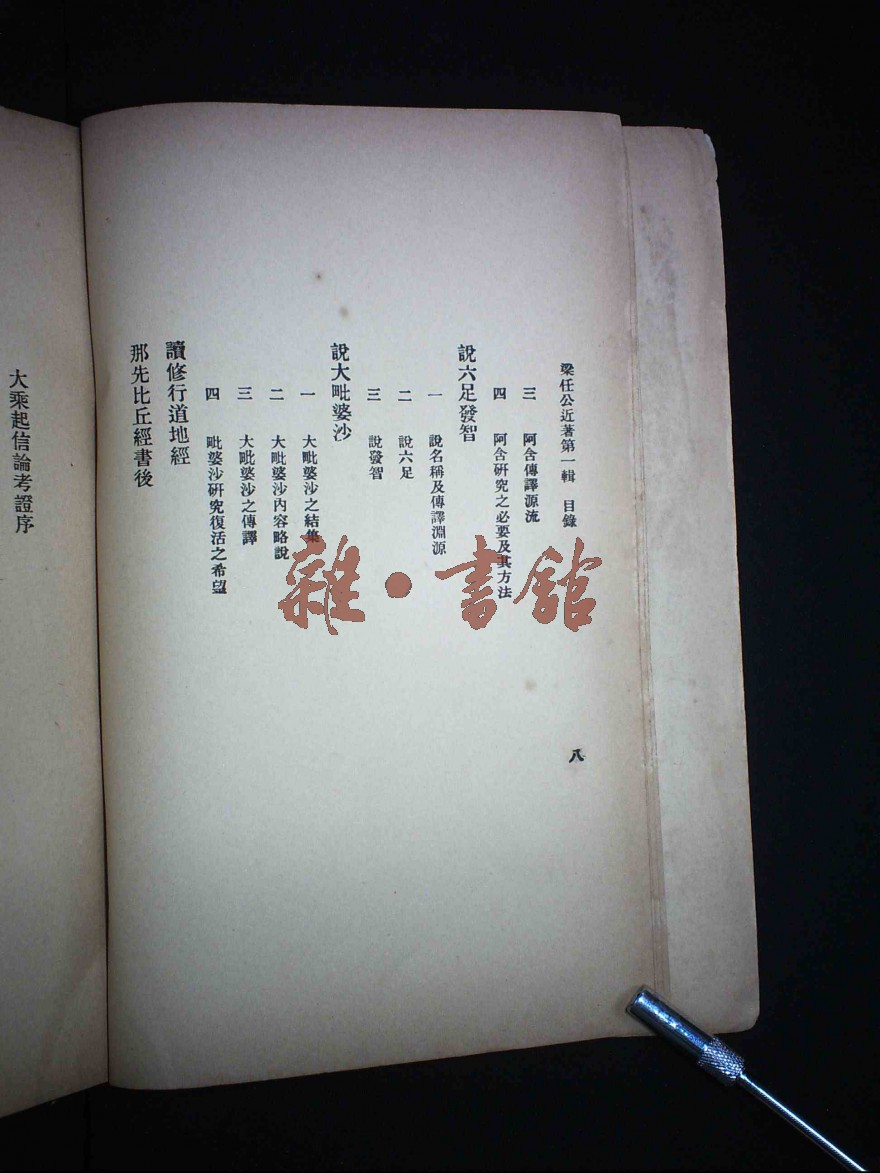 梁任公近著第一輯 目錄
三 阿含傳譯源流
四 阿含研究之必要及其方法
說六足發智
一 說名稱及傳譯淵源
二 說六足
三 說發智
說大毗婆沙
一 大毗婆沙之結集
二 大毗婆沙內容略說
三 大毗婆沙之傳譯
四 毗婆沙研究復活之希望
讀修行道地經
那先比丘經書後
八
大乘起信論考證序
雜·書館